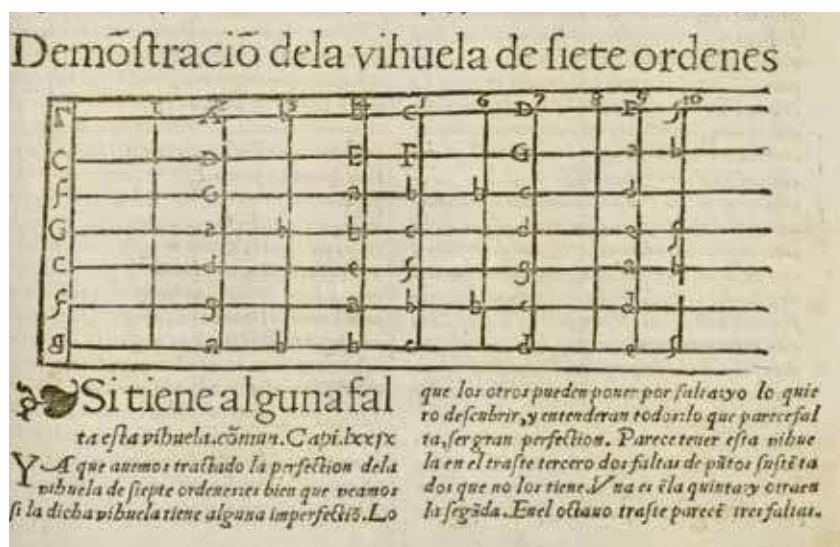 Demõſtraciõ dela vihuela de ſiete ordenes
Γ 1 A 3 4 c 5 6 D 7 8 E 9 ſ 10
C D E F G a b
F G a b b c d
G a b b c d e f
c d e f g a b
f g a b b c d
g a b b c d e f
Si tiene alguna fal
ta eſta vihuela.cõmun.Capi.lxxix
YA que auemos tractado la perfection dela
vihuela de ſiepte ordenes:es bien que veamos
ſi la dicha vihuela tiene alguna imperfectiõ.Lo
que los otros pueden poner por falta:yo lo quie
ro deſcubrir,y entenderan todos:lo que parece fal
ta,ſer gran perfection. Parece tener eſta vihue
la en el traſte tercero dos faltas de pũtos ſuſtẽta
dos que no los tiene.Vna es ẽla quinta:y otra en
la ſegũda. Enel octauo traſte parecẽ tres faltas.